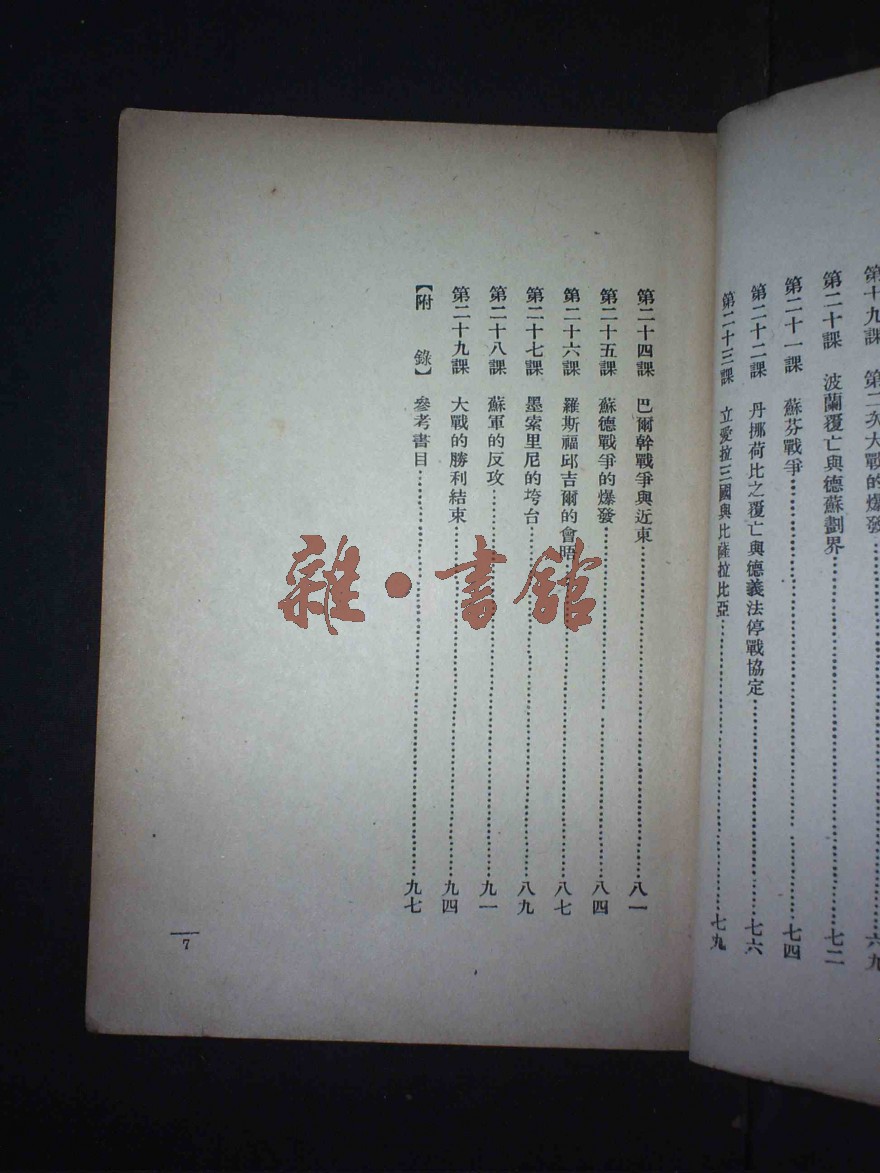 第十九課 第二次大戰的爆發……六九
第二十課 波蘭覆亡與德蘇劃界……七二
第二十一課 蘇芬戰爭……七四
第二十二課 丹挪荷比之覆亡與德義法停戰協定……七六
第二十三課 立愛拉三國與比薩拉比亞……七九
第二十四課 巴爾幹戰爭與近東……八一
第二十五課 蘇德戰爭的爆發……八四
第二十六課 羅斯福邱吉爾的會晤……八七
第二十七課 墨索里尼的垮台……八九
第二十八課 蘇軍的反攻……九一
第二十九課 大戰的勝利結束……九四
【附 錄】參考書目……九七
7
雜·書館